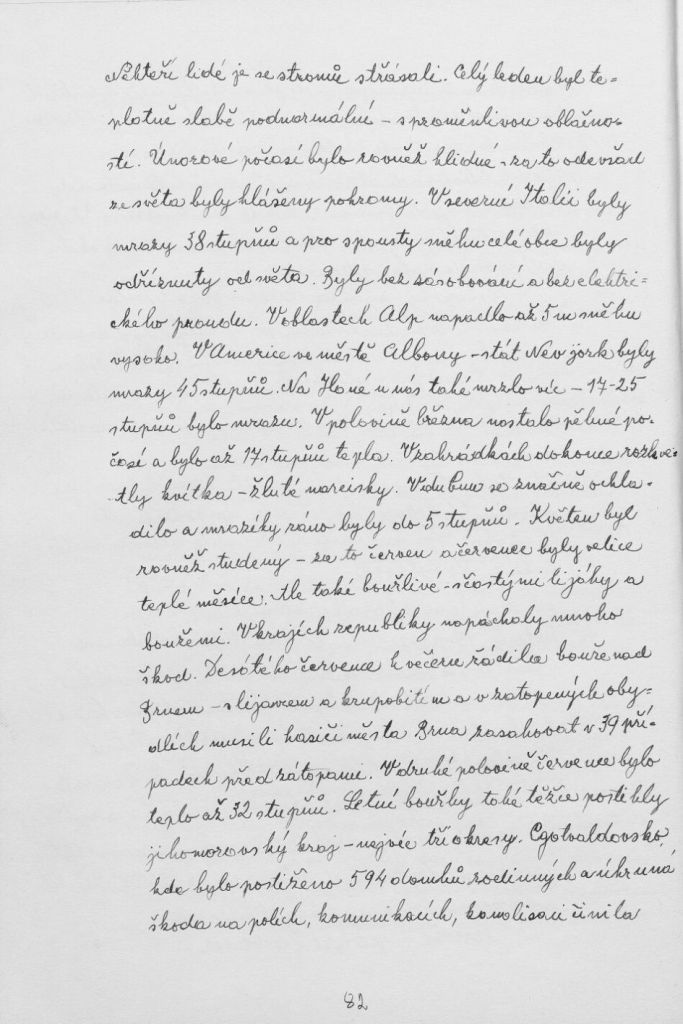 Někteří lidé je se stromů střásali. Celý leden byl te=
plotně slabě podnormální – s proměnlivou oblačno-
stí. Únorové počasí bylo rovněž klidné – za to odevšad
ze světa byly hlášeny pohromy. V severní Italii byly
mrazy 38 stupňů a pro spousty sněhu celé obce byly
odříznuty od světa. Byly bez zásobování a bez elektri=
ckého proudu. V oblastech Alp napadlo až 5 m sněhu
vysoko. V Americe ve městě Albony – stát New jork byly
mrazy 45 stupňů. Na Hané u nás také mrzlo víc – 17-25
stupňů bylo mrazu. V polovině března nastalo pěkné po-
časí a bylo až 17 stupňů tepla. V zahrádkách dokonce rozkve-
tly kvítka – žluté narcisky. V dubnu se značně ochla-
dilo a mrazíky ráno byly do 5 stupňů. Květen byl
rovněž studený – za to červen a červenec byly velice
teplé měsíce. Ale také bouřlivé – s častými lijáky a
bouřemi. V krajích republiky napáchaly mnoho
škod. Desátého července k večeru řádila bouře nad
Brnem – s lijavcem a krupobitím a v zatopených oby=
dlích musili hasiči města Brna zasahovat v 39 pří-
padech před zátopami. V druhé polovině července bylo
teplo až 32 stupňů. Letní bouřky také těžce postihly
jihomoravský kraj – nejvíc tři okresy. Cgotvaldovsko,
kde bylo postiženo 594 domků rodinných a úhrnná
škoda na polích, komunikacích, kanalisaci činila
82